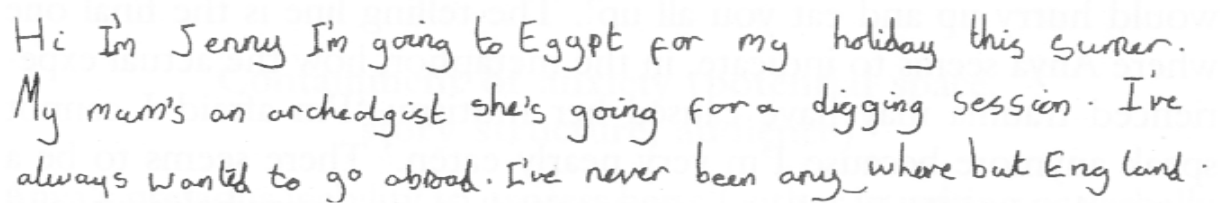 Hi I'm Jenny I'm going to Egypt for my holiday this sumer.
My mum's an archeolgist she's going for a digging session. I've
always wanted to go abroad. I've never been any_where but England.